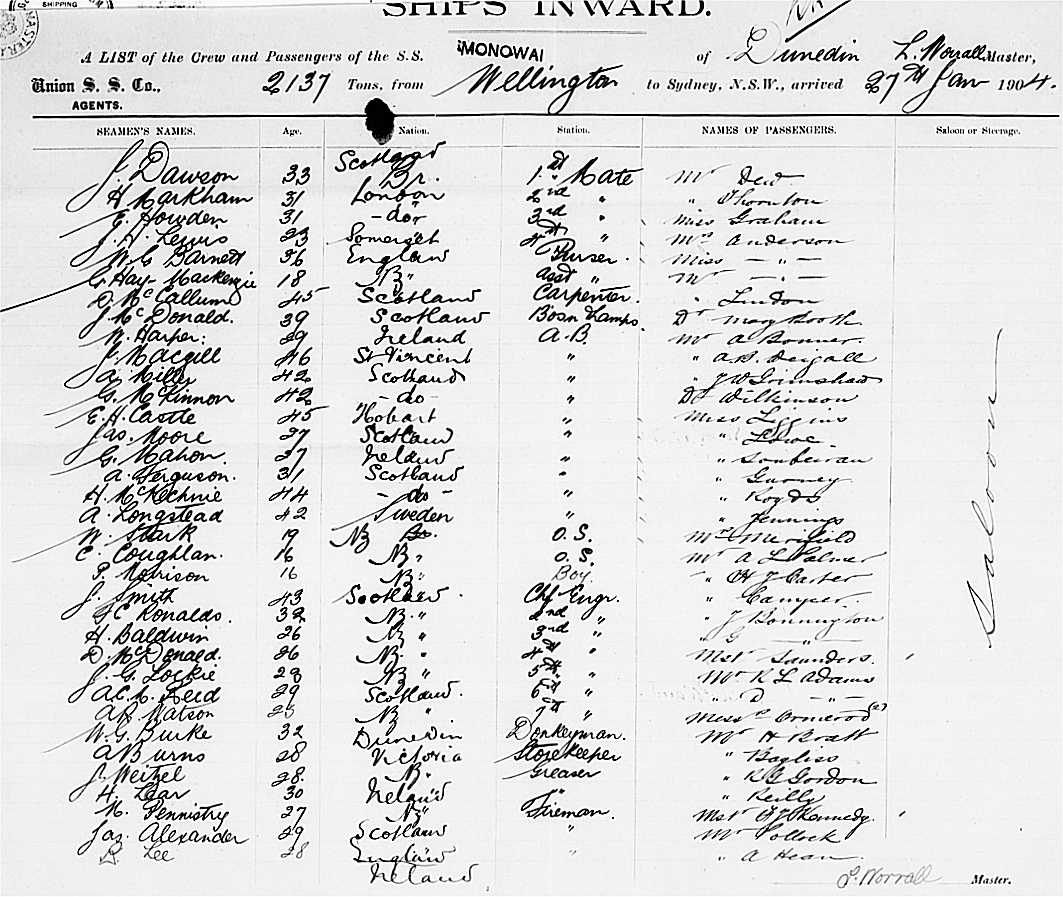 SHIPPING
MASTER
SHIPS INWARD.
A LIST of the Crew and Passengers of the S.S. MONOWAI of Dunedin L. Worrall Master,
Union S. S. Co., 2137 Tons, from Wellington to Sydney, N.S.W., arrived 27th Jan 1904.
AGENTS.
SEAMEN'S NAMES. Age. Nation. Station. NAMES OF PASSENGERS. Saloon or Steerage.
Scotland
J. Dawson 33 Br. 1st Mate Mr Dew
H Markham 31 London 2nd " " Thornton
E. Howden 31 - do - 3rd " Miss Graham
J. H. Lewis 23 Somerset 4th " Mrs Anderson
W G Barnett 36 England Purser. Miss - " -
G Hay-Mackenzie 18 N Z " Asst " Mr - " -
D. McCallum 45 Scotland Carpenter. " Lindon
J. McDonald. 39 Scotland Bosn Lamps. Dr Mary Booth
W. Harper. 29 Ireland A.B. Mr A Bonner.
J. Macgill 46 St Vincent " " A.B. Deigall
A. Miller 42 Scotland " " J W Grimshaw
G. McKinnon 42 - do - " Dr Wilkinson
E. H. Castle 45 Hobart " Miss Liggins
Jas. Moore 27 Scotland " " Lowe.
G. Mahon. 27 Ireland "
A. Ferguson. 31 Scotland " " Gurney
H McKechnie 44 - do - " " Royds
A. Longstead 42 Sweden " " Jennings
W. Stark 19 N Z O.S. Mrs Merifield
C. Coughlan. 16 N Z " O.S. Mr A L Palmer
P. Morrison 16 N Z " Boy. " H J Carter
J. Smith 43 Scotland. Chf Engr. "
G C Ronalds. 32 N Z " 2nd " " J Bonnington
H. Baldwin 26 N Z " 3rd " " G - " -
D. McDonald. 26 N Z " 4th " Mstr Saunders.
J. G. Lockie 28 N Z " 5th " Mr R L Adams
A C L Reid 29 Scotland. 6th " " D - " -
A R Watson 25 N Z " 7th " Messrs Ormerod (2)
W. G. Burke 32 Dunedin Donkeyman. Mr H Bratt
A Burns 28 Victoria Storekeeper " Bayliss
J. Weitzel 28. N Z " Greaser " R G Gordon
H. Lear 30 Ireland " " Reilly
M. Pennistry 27 N Z " Fireman. Mstr F J Kennedy.
Jas. Alexander 29 Scotland " Mr Pollock
Lee 28 England " " A Hean.
Ireland
Saloon
L. Worrall Master.